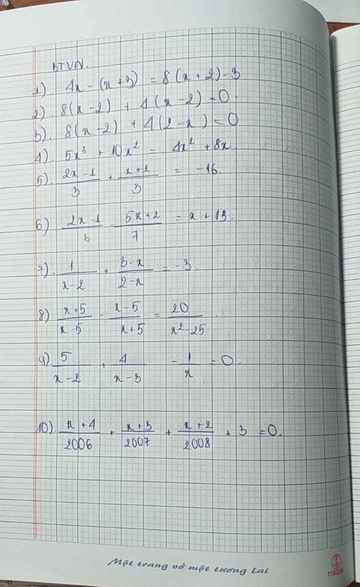 BTVN.
1) 4x - (x+3) = 8(x+2) - 3
2) 8(x-2) + 4(x-2) = 0.
3) 8(x-2) + 4(2-x) = 0
4) 5x³ + 10x² = 4x² + 8x
5) (2x-1)/3 + (x+2)/3 = -16.
6) (2x-1)/3 - (5x+2)/7 = x + 13.
7) 1/(x-2) + (3-x)/(2-x) = -3
8) (x+5)/(x-5) - (x-5)/(x+5) = 20/(x²-25)
9) 5/(x-2) + 4/(x-3) - 1/x = 0.
10) (x+4)/2006 + (x+3)/2007 + (x+2)/2008 + 3 = 0.
Một trang vở một tương lai